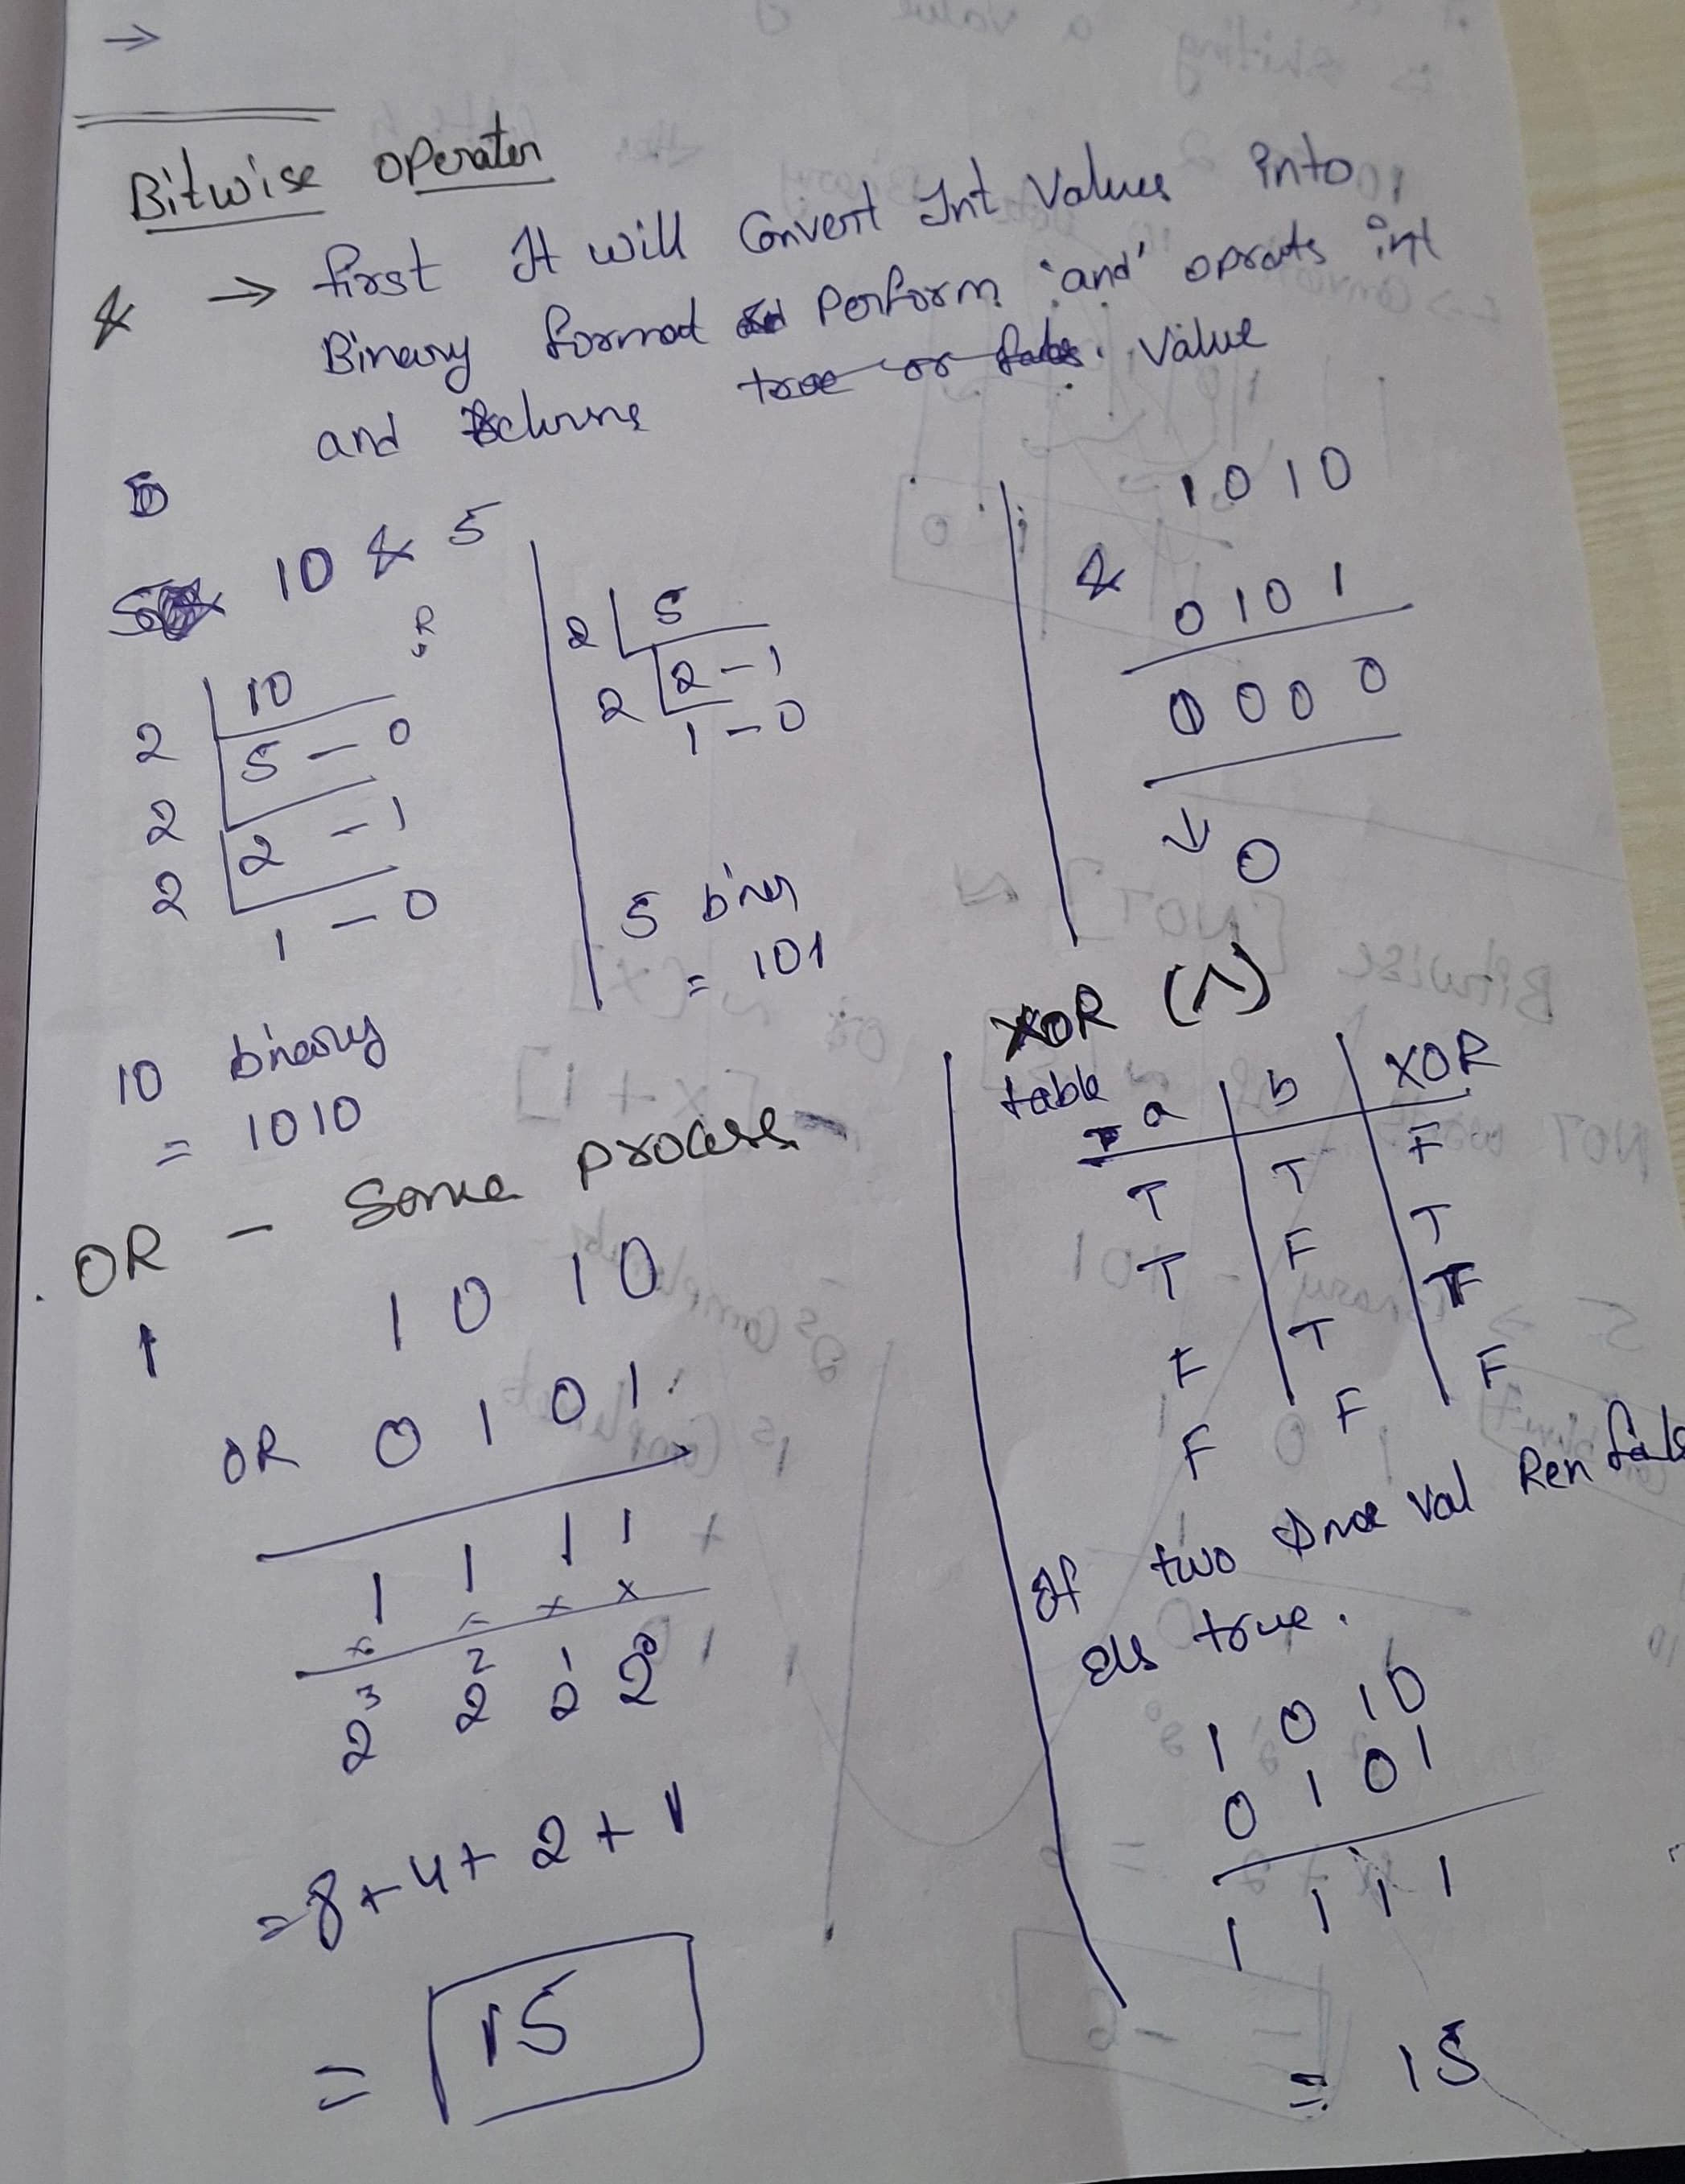 →
Bitwise operator
& → first It will Convert Int Values into
Binary format and Perform 'and' oprats int
and Returns true or false. Value
10 & 5
R
2 | 10
2 | 5 - 0
2 | 2 - 1
1 - 0
10 binary
= 1010
2 | 5
2 | 2 - 1
1 - 0
5 binry
= 101
1 0 1 0
& 0 1 0 1
0 0 0 0
↓ 0
OR - Same process
1 0 1 0
OR 0 1 0 1
1 1 1 1 +
x x x x
2³ 2² 2¹ 2⁰
= 8 + 4 + 2 + 1
= 15
XOR (^)
table
a | b | XOR
T | T | F
T | F | T
F | T | T
F | F | F
If two Same val Ren
els true.
1 0 1 0
0 1 0 1
1 1 1 1
= 15